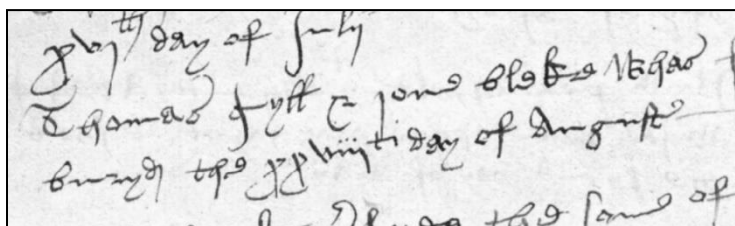 xvi th day of Julii
Thomas Gyll & Jone
buryd the xxviii ti day of August
the sone of